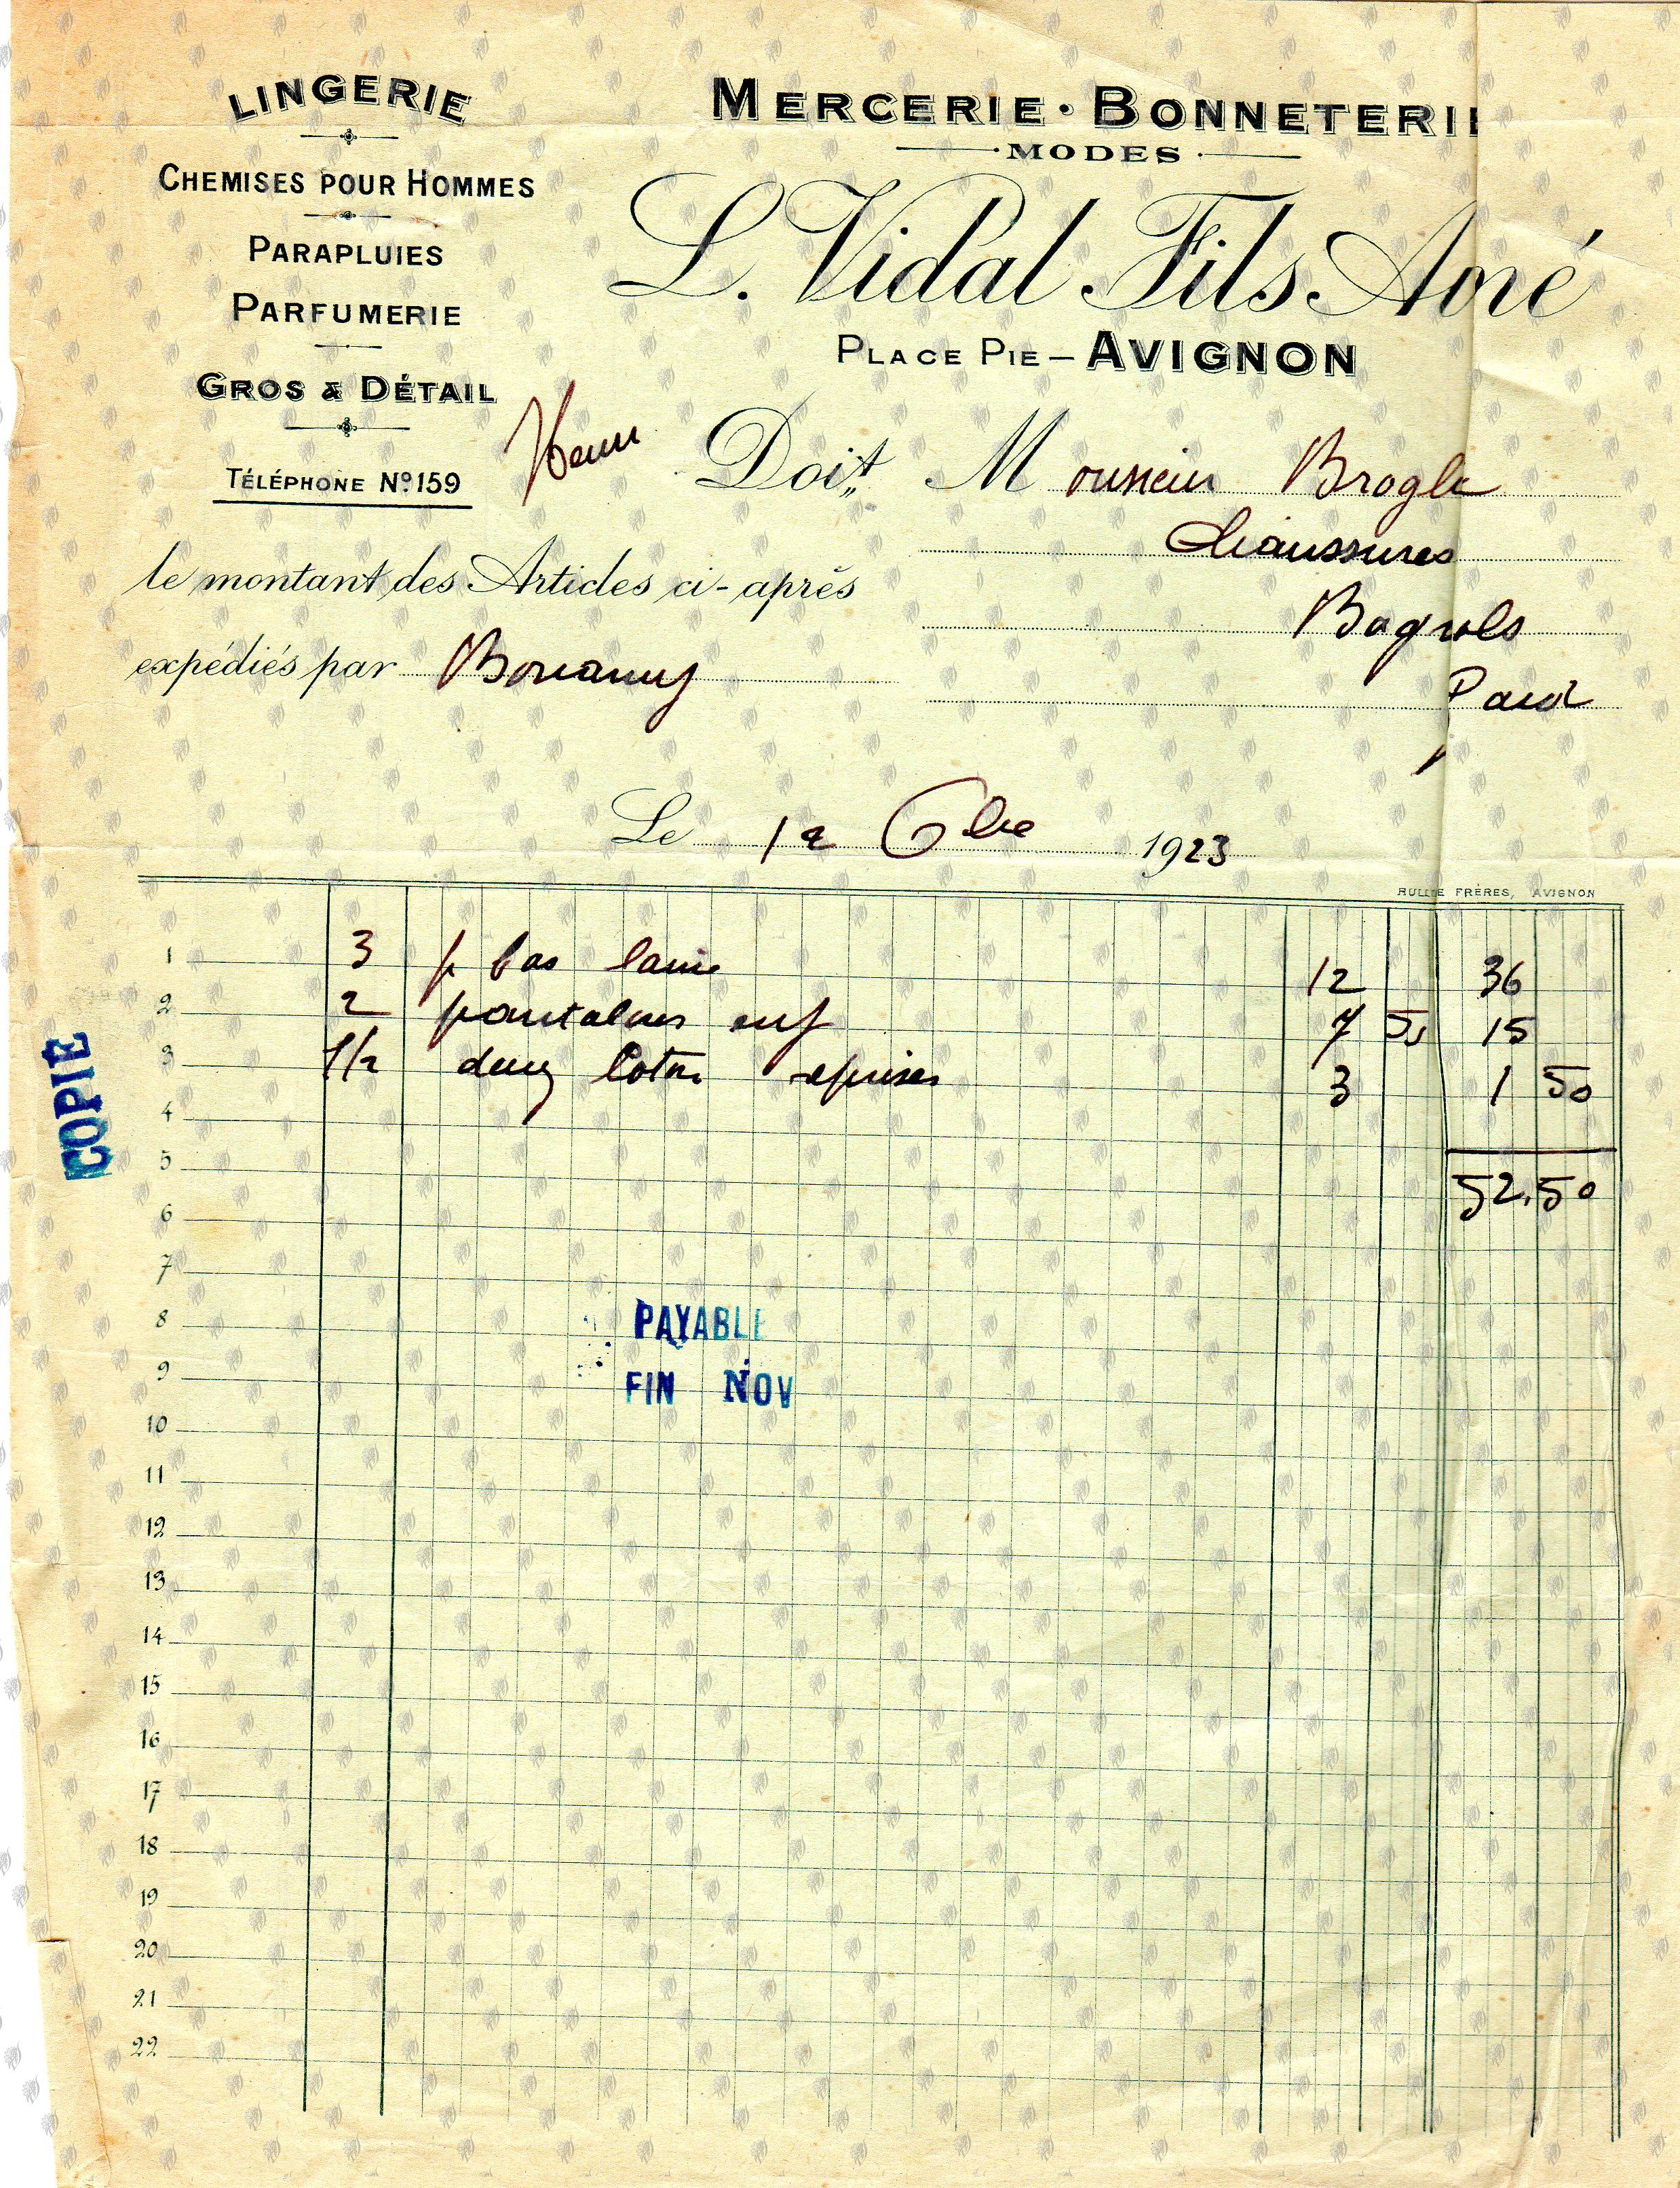 LINGERIE
CHEMISES POUR HOMMES
PARAPLUIES
PARFUMERIE
GROS & DÉTAIL
TÉLÉPHONE Nº 159
MERCERIE · BONNETERIE
MODES
L. Vidal Fils Aîné
PLACE PIE – AVIGNON
Doit M onsieur Brogle
Chaussures
Bagnols
Gard
le montant des Articles ci-après
expédiés par Bonamy
Le 12 bre 1923
FRÈRES, AVIGNON
1 3 p bas laine 12 36
2 2 pantalons enf 7 50 15
3 1/2 douz coton repriser 3 1 50
4
5
52.50
6
7
8
PAYABLE
9
FIN NOV
10
11
12
13
14
15
16
17
18
19
20
21
22
COPIE